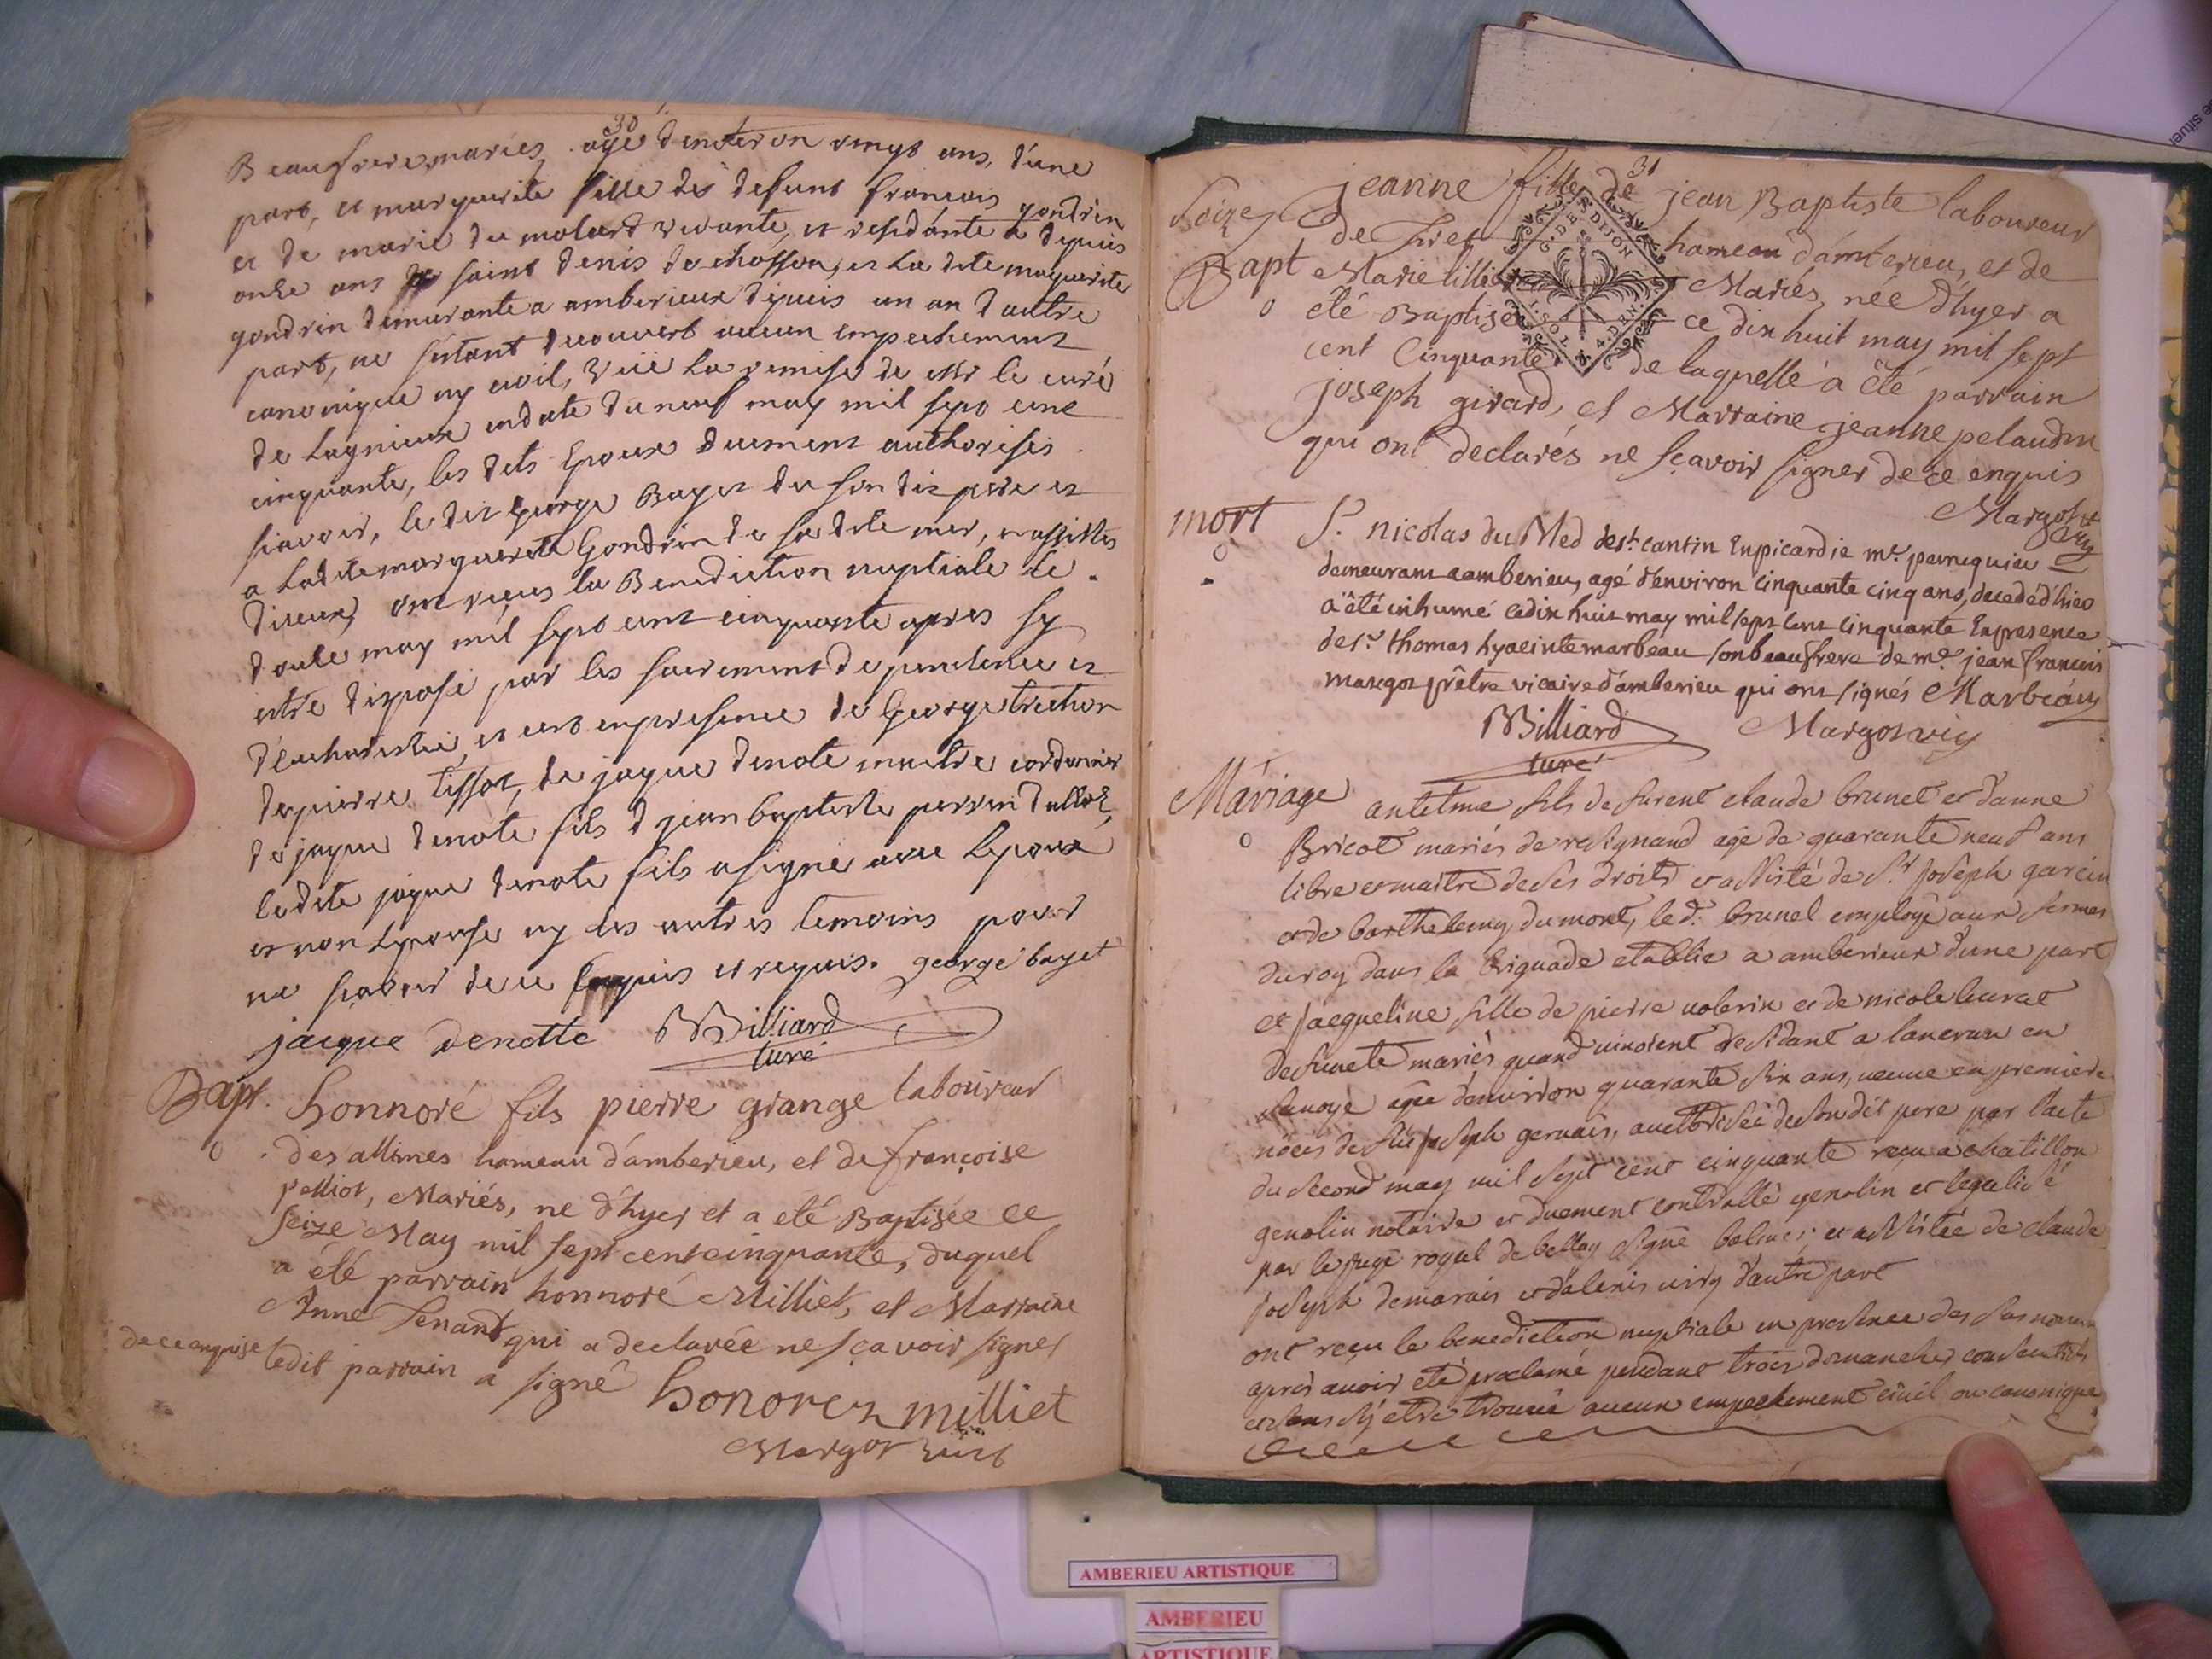 30
Beaufrere mariés agé denviron vingt ans, d'une
part, et marguerite fille de defunt françois gondrin
et de marie du molard vivante, et residante a depuis
onze ans saint denis de chosson, et la dite marguerite
gondrin demurante a amberieux depuis un an d'autre
part, ne s'étant decouvert aucun empechement
canonique ny civil, veüe la remise de Mr le curé
de Lagnieux en date du neuf may mil sept cent
cinquante, les dits Epoux duement authorisés
sçavoir, le dit george Bayet de son dit pere et
a ladite marguerite Gondrin de sa dite mere, et assistés
d'iceux, ont reçus la Benediction nuptiale le
douze may mil sept cent cinquante apres sy
etre disposé par les sacrements de penitence et
d'eucharistie, et ce en presence de George
de pierre tissot, de jaque denote maitre cordonnier
de jaque denote fils d jean baptiste perrin
ledite jaque denote fils a signé avec Lepoux
et non Lepouse ny les autres temoins pour
ne sçavoir de ce enquis et requis. george bayet
jacque denotte Billiard
curé
Bapt. honnoré fils pierre grange laboureur
des allimes hameau d'amberieu, et de françoise
pelliot, Mariés, ne d'hyer et a été Baptisée ce
seize May mil sept cent cinquante, duquel
a été parrain honnoré Milliet, et Marraine
Anne Tenand qui a declarée ne sçavoir signer
de ce enquise ledit parrain a signé
honorez milliet
Margot vic
31
jeanne fille de jean Baptiste laboureur
de hameau d'amberieu, et de
Bapt Marie Mariés, née d'hyer a
été Baptisée ce dix huit may mil sept
cent Cinquante de laquelle a été parrain
joseph girard, et Marraine jeanne pelaudin
qui ont declarés ne sçavoir signer de ce enquis
Margot
vic
G. DE DIJON
I. SOL 4 DEN.
mort S.r nicolas du Med de st. cantin En picardie me. perruquier
demeurant a amberieu, agé d'environ cinquante cinq ans, decedé d'hier
a été inhumé ce dix huit may mil sept cent cinquante En presence
de sr. thomas hyacinte marbeau son beaufrere de me. jean francois
margot prêtre vicaire d'amberieu qui ont signés Marbeau
Billiard Margot vic
curé
Mariage antelme fils de furent claude brunet et d'anne
Bricot mariés de rossignand agé de quarante neuf ans
libre et maitre de ses droits et assisté de Sr joseph garcin
et de barthelemy dumont, le d. brunet employé aux fermes
du roy dans la briguade etablie a amberieux d'une part
et jacqueline fille de pierre et de nicole
defunete mariés quand vivoient residant a en
savoye agée d'environ quarante six ans, veuve en premiere
nôces de feu joseph gervais, authorisée de son dit pere par l'acte
du second may mil sept cent cinquante reçu a chatillon
genolin notaire et duement controllé genolin et legalisé
par le juge royal de bellay signé et assistée de claude
joseph demarais et d'alexis d'autre part
ont reçu la benediction nuptiale en presence des
apres avoir été proclamé pendant trois dimanches consecutifs
et sans s'y etre trouvé aucun empechement civil ou canonique
AMBERIEU ARTISTIQUE
AMBERIEU
ARTISTIQUE